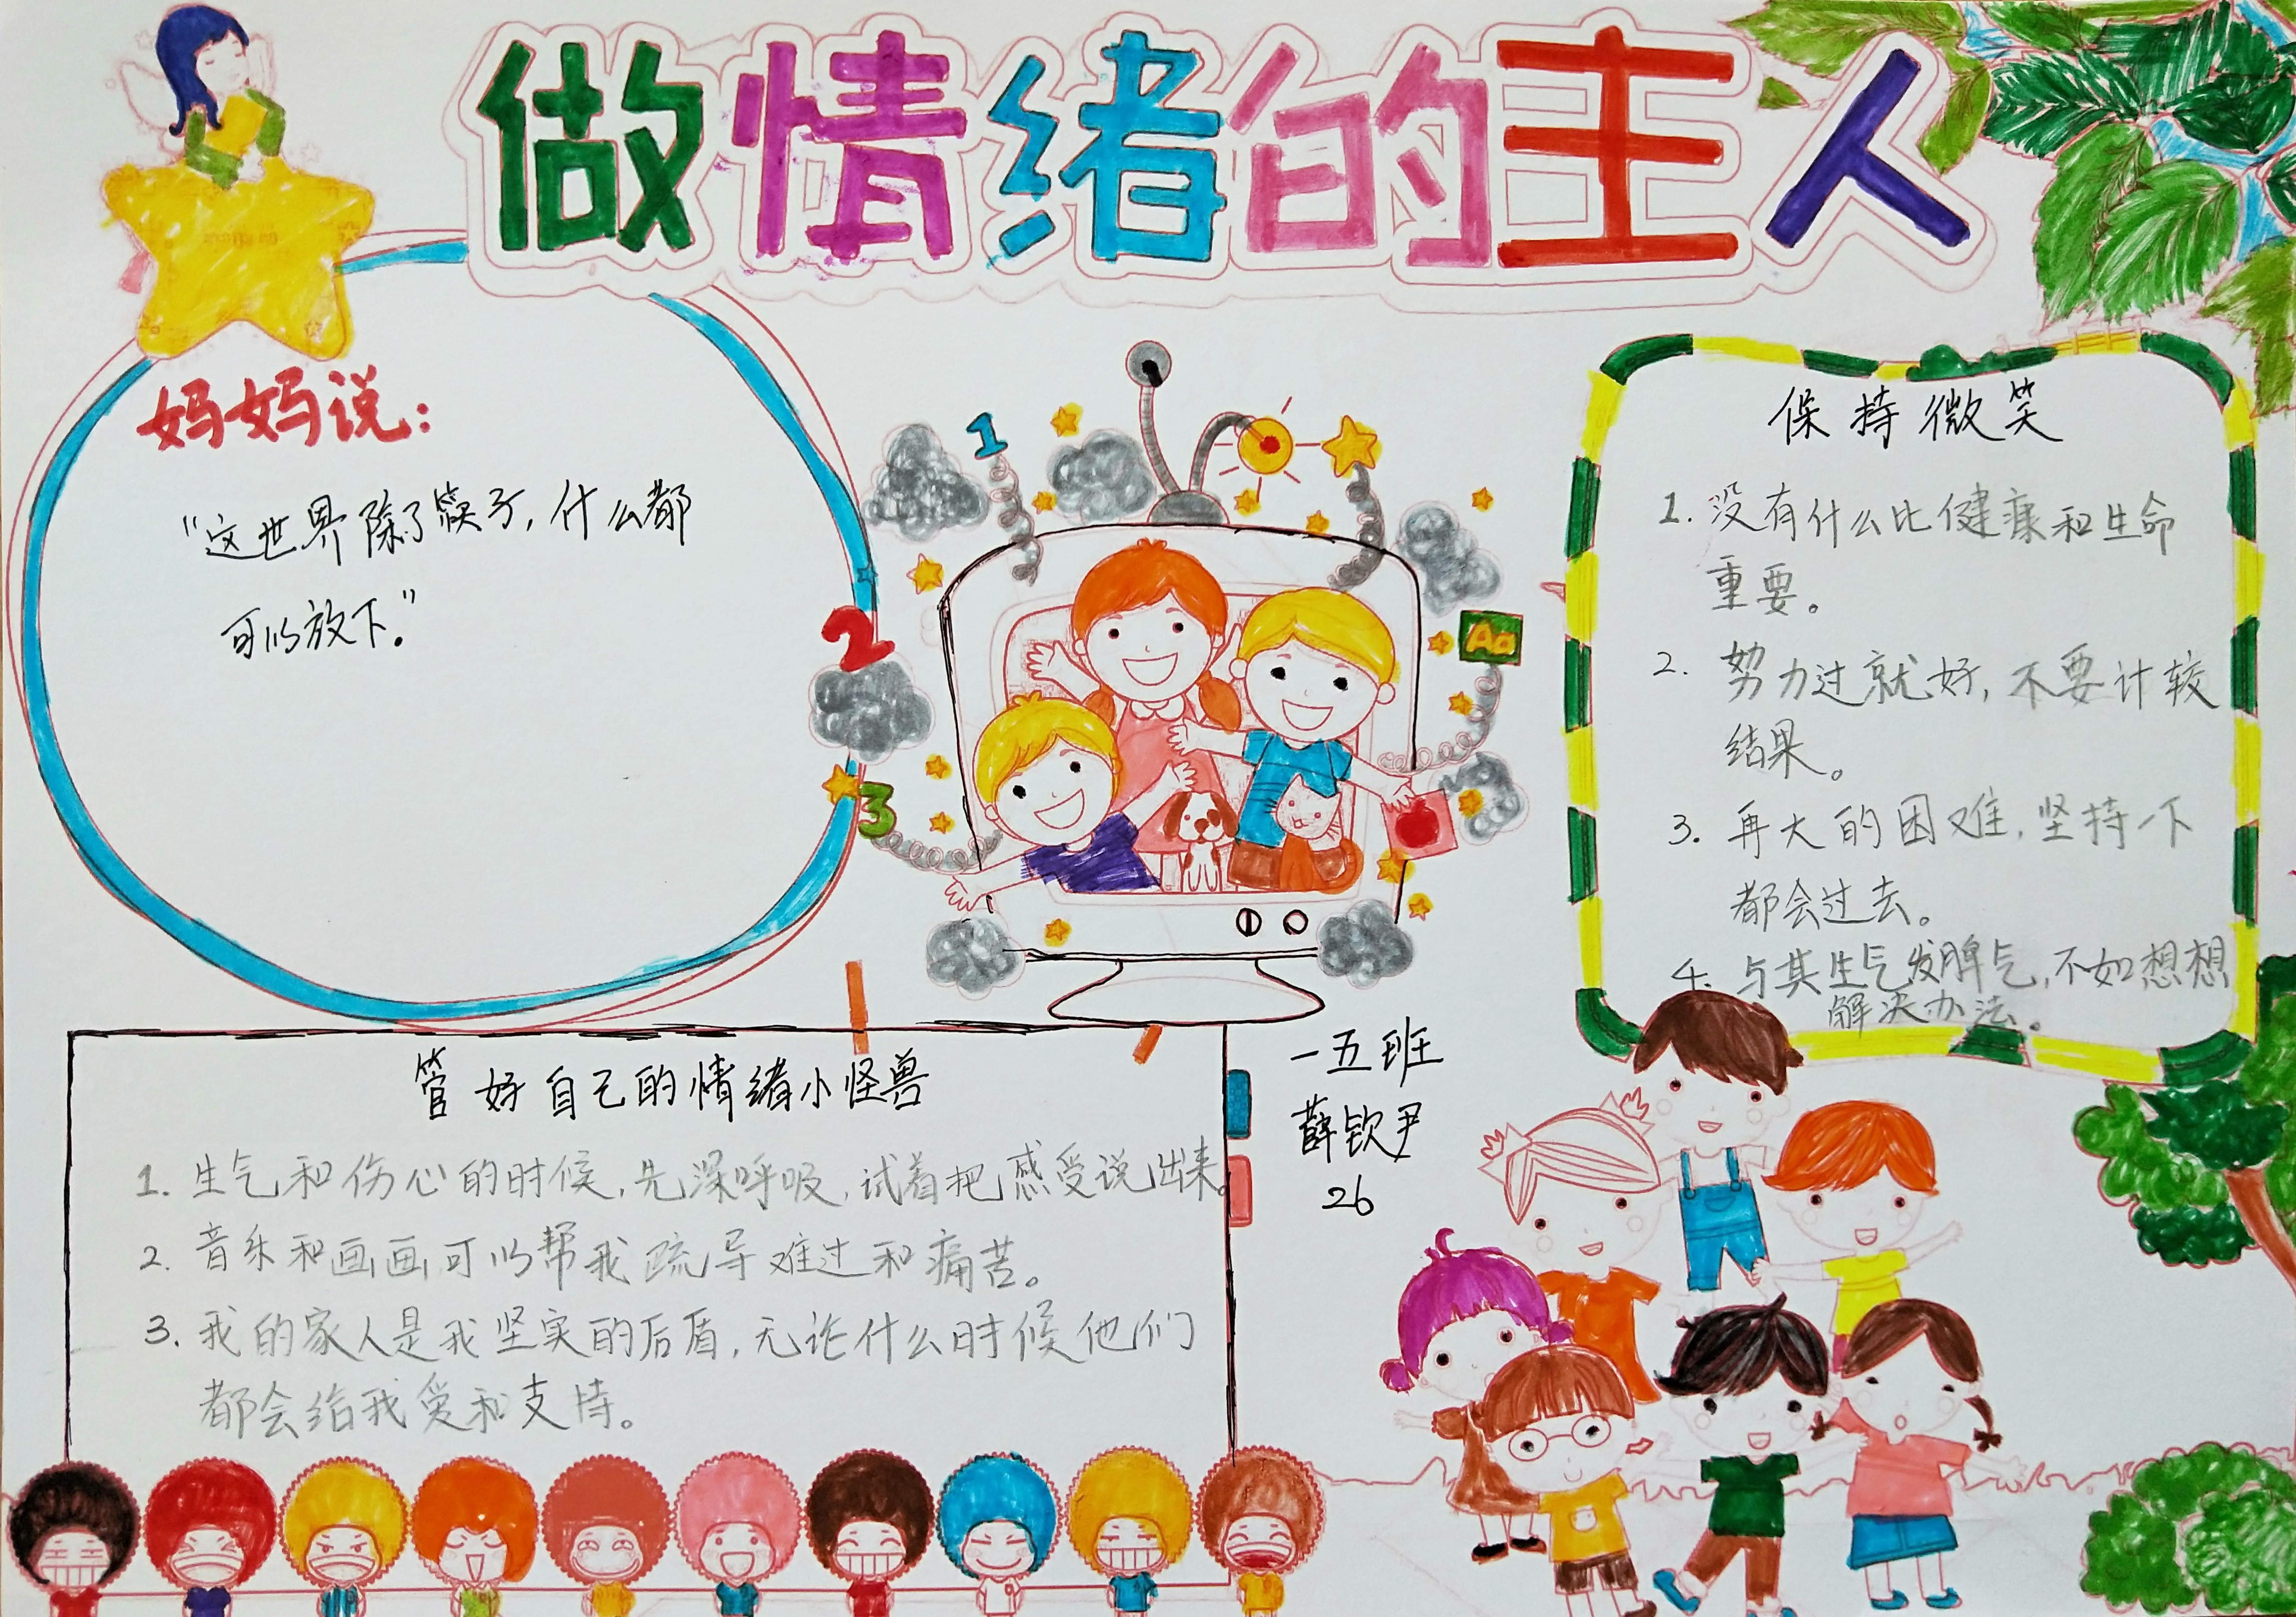 做情绪的主人
妈妈说：
“这世界除了筷子，什么都
可以放下。”
1
2
3
Aa
保持微笑
1. 没有什么比健康和生命
重要。
2. 努力过就好，不要计较
结果。
3. 再大的困难，坚持一下
都会过去。
4. 与其生气发脾气，不如想想
解决办法。
管好自己的情绪小怪兽
1. 生气和伤心的时候，先深呼吸，试着把感受说出来。
2. 音乐和画画可以帮我疏导难过和痛苦。
3. 我的家人是我坚实的后盾，无论什么时候他们
都会给我爱和支持。
一五班
薛钦尹
26